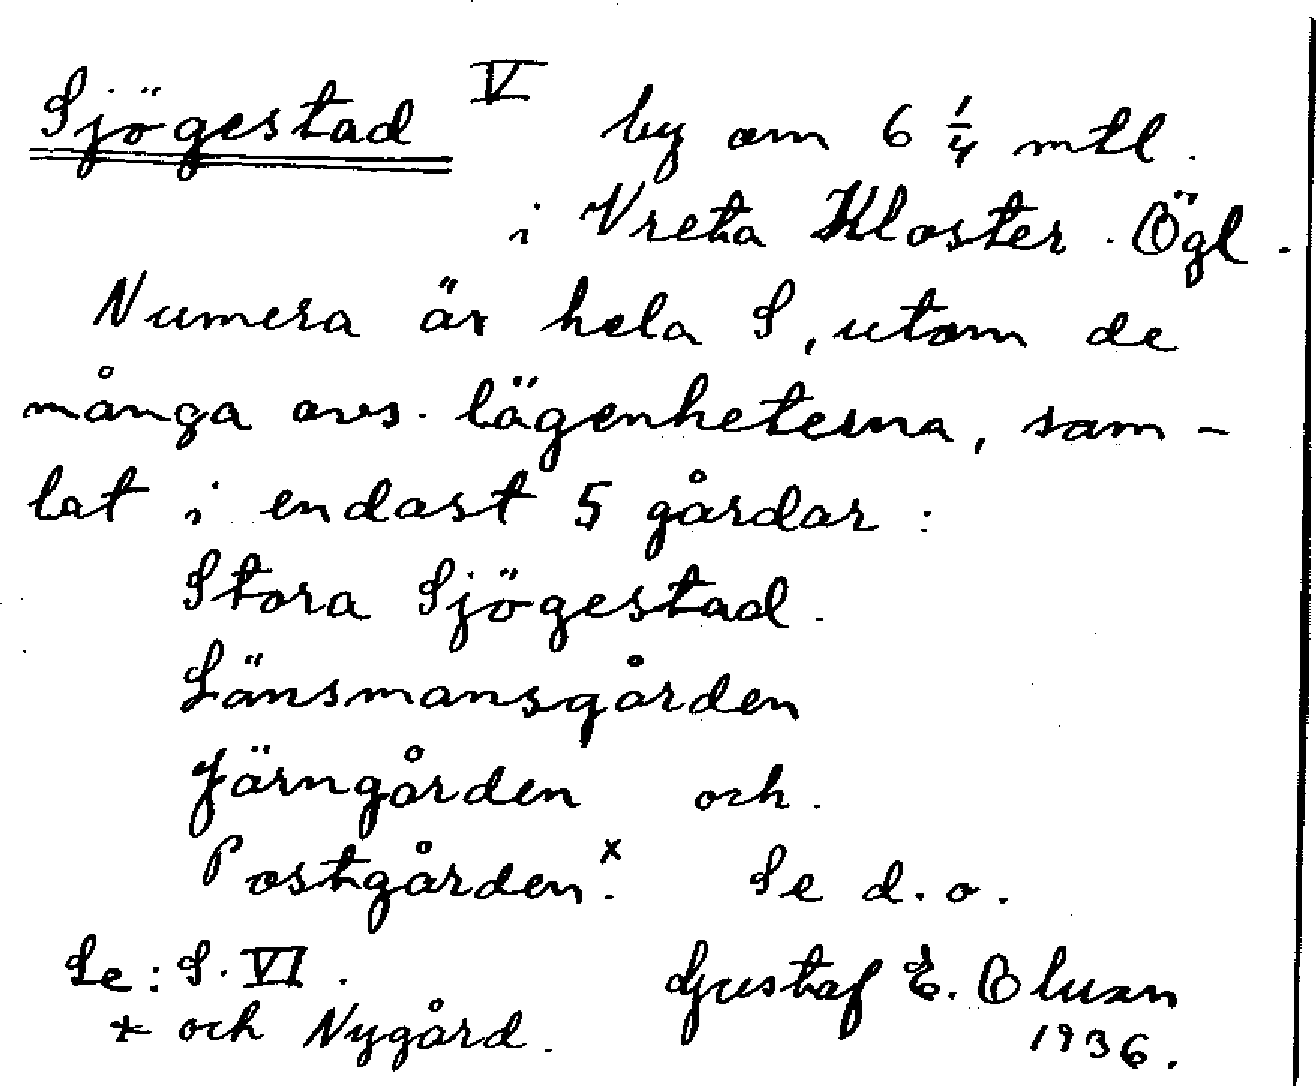 Sjögestad V by om 6 1/4 mtl.
i Vreta Kloster. Ögl.
Numera är hela S, utom de
många avs. lägenheterna, sam-
lat i endast 5 gårdar:
Stora Sjögestad.
Länsmansgården
Järngården och.
Postgården.x Se d.o.
Se: S. VI.
x och Nygård.
Gustaf E.
1936.